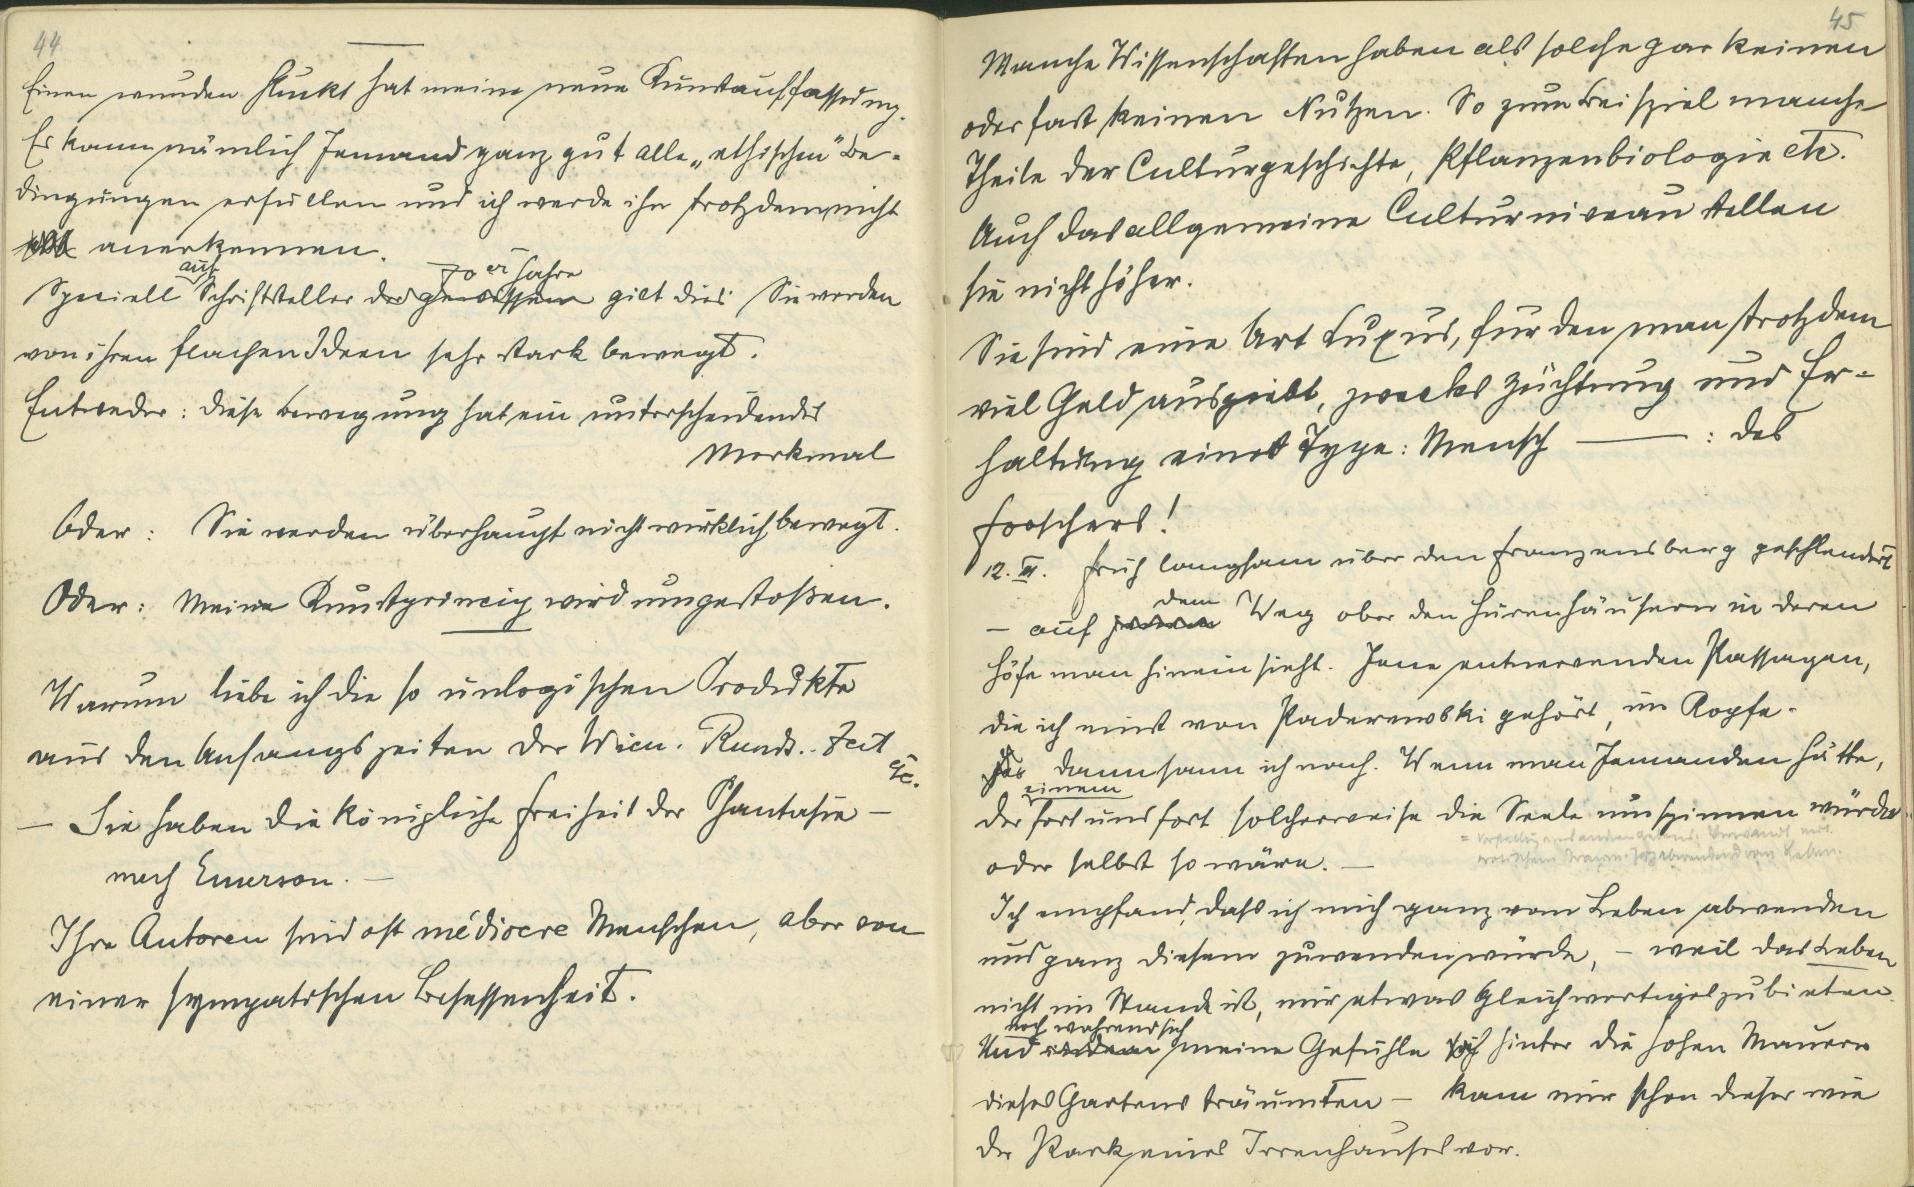 44
Einen wunden Punkt hat meine neue Kunstauffassung.
Es kann nämlich Jemand ganz gut alle „ethischen" Be-
dingungen erfüllen und ich werde ihn trotzdem nicht
anerkennen.
auf 70er Jahre
Speciell Schriftsteller der gewissen gilt dies: Sie werden
von ihren flachen Ideen sehr stark bewegt.
Entweder: diese Bewegung hat ein unterscheidendes
Merkmal
Oder: Sie werden überhaupt nicht wirklich bewegt.
Oder: Meine Kunstprincip wird umgestoßen.
Warum liebe ich die so unlogischen Produkte
aus den Anfangszeiten der Wien. Runds.. Zeit etc.
– Sie haben die königliche Freiheit der Phantasie –
nach Emerson. –
Ihre Autoren sind oft médiocre Menschen, aber von
einer sympatischen Besessenheit.
45
Manche Wissenschaften haben als solche gar keinen
oder fast keinen Nutzen. So zum Beispiel manche
Theile der Culturgeschichte, Pflanzenbiologie etc.
Auch das allgemeine Culturniveau stellen
sie nicht höher.
Sie sind eine Art Luxus, für den man trotzdem
viel Geld ausgiebt, zwecks Züchtung und Er-
haltung einer Type: Mensch ——— : des
Forschers!
12. III. Früh langsam über den Franzensberg geschlendert
dem
– auf Weg ober den Hurenhäusern in deren
Höfe man hineinsieht. Jene entnervenden Passagen,
die ich einst von Paderewski gehört, im Kopfe.
dann sann ich nach. Wenn man Jemanden hätte,
einem
der fort und fort solcherweise die Seele umspinnen würde
oder selbst so wäre. –
Ich empfand, dass ich mich ganz vom Leben abwenden
und ganz diesem zuwenden würde, – weil das Leben
nicht im Stande ist, mir etwas Gleichwertiges zu bieten.
noch während sich
Und indem meine Gefühle sich hinter die hohen Mauern
dieses Gartens träumten – kam mir schon dieser wie
der Park eines Irrenhauses vor.